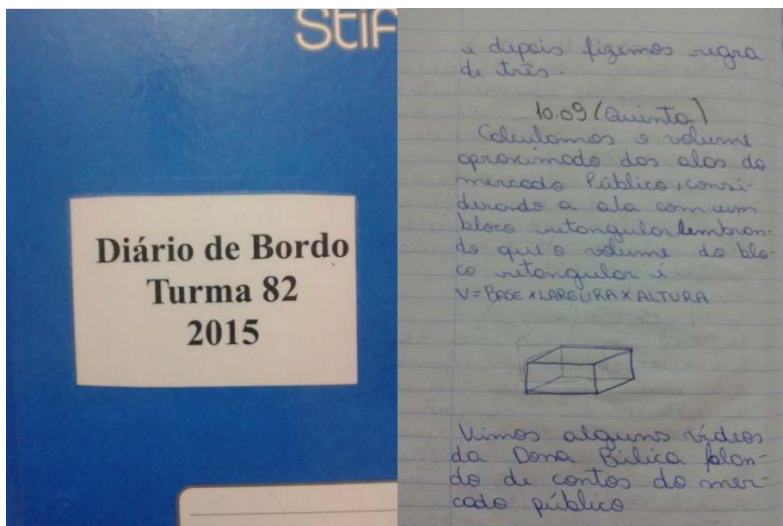 Stif
Diário de Bordo
Turma 82
2015
e depois fizemos regra
de três.
10.09 (Quinta)
Calculamos o volume
aproximado das alas do
mercado Público, consi-
derando a ala com um
bloco retangular lembran-
do que o volume do blo-
co retangular é
V=BASE X LARGURA X ALTURA
Vimos alguns vídeos
da Dona falan-
do de contos do mer-
cado público